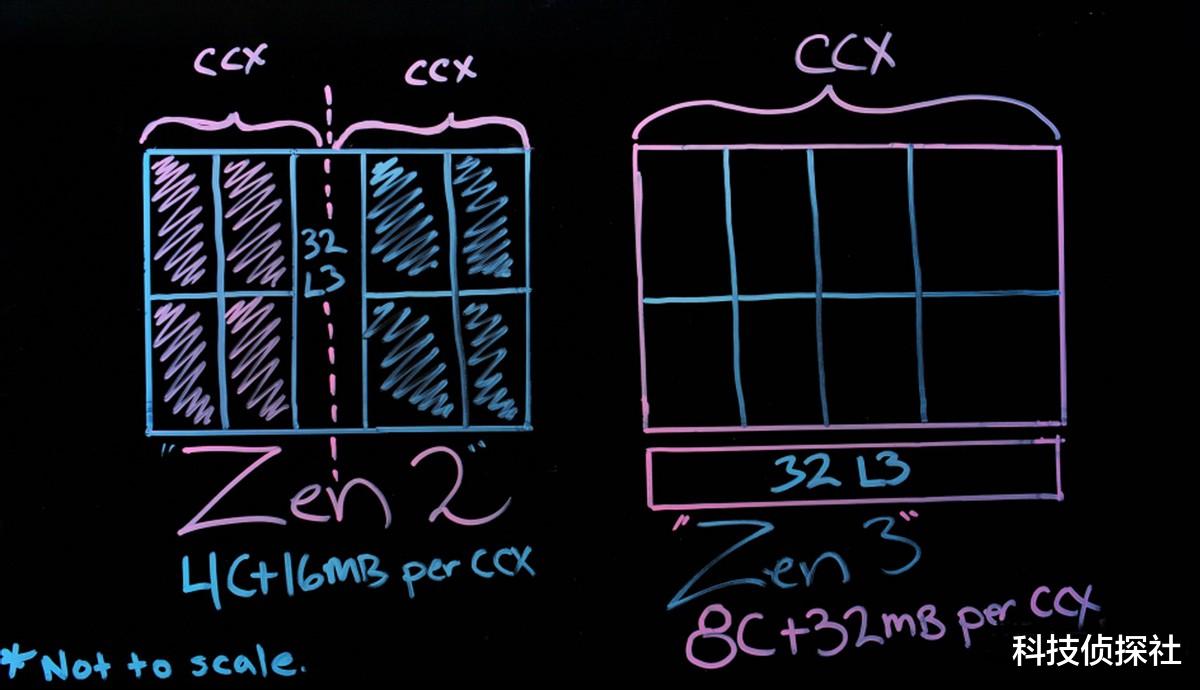 CCX
CCX
32
L3
"Zen 2"
4C+16MB per CCX
*Not to scale.
CCX
32 L3
"Zen 3"
8C+32MB per CCX
科技侦探社